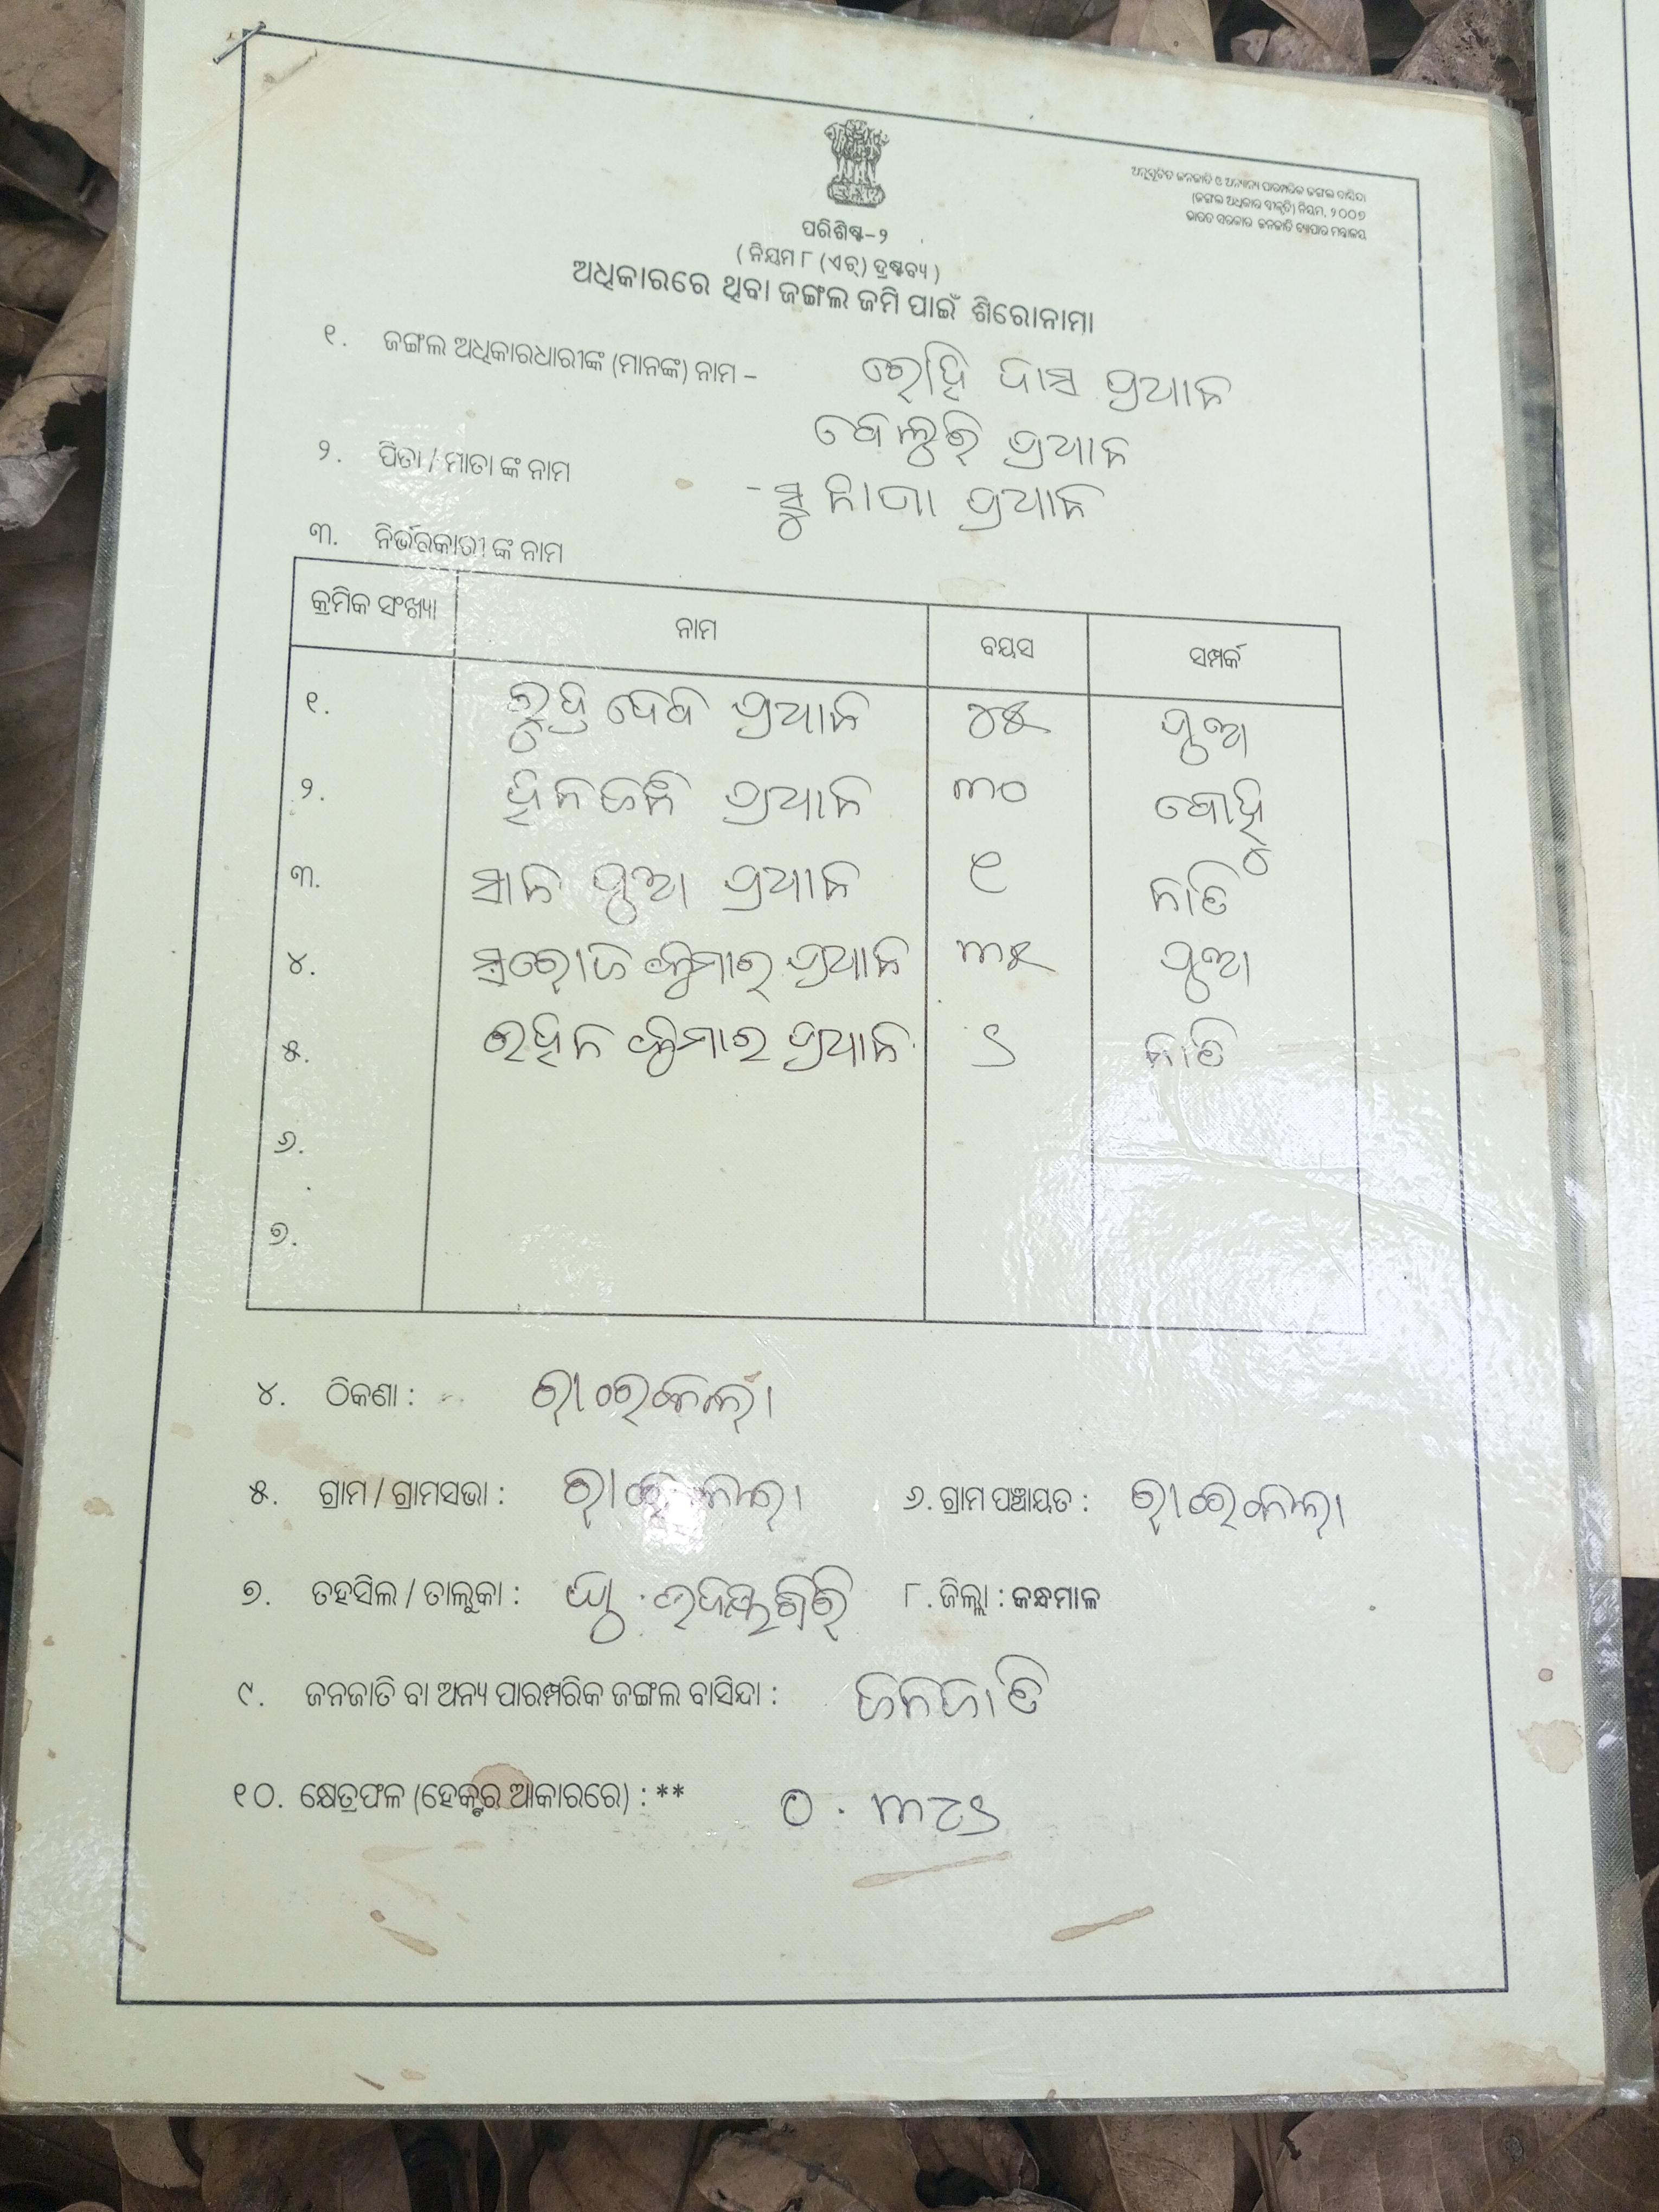 ଅନୁସୂଚିତ ଜନଜାତି ଓ ଅନ୍ୟାନ୍ୟ ପାରମ୍ପରିକ ଜଙ୍ଗଲ ବାସିନ୍ଦା
(ଜଙ୍ଗଲ ଅଧିକାର ସ୍ୱୀକୃତି) ନିୟମ, ୨୦୦୭
ଭାରତ ସରକାର ଜନଜାତି ବ୍ୟାପାର ମନ୍ତ୍ରାଳୟ
ପରିଶିଷ୍ଟ-୨
( ନିୟମ ୮ (ଏଚ୍) ଦ୍ରଷ୍ଟବ୍ୟ )
ଅଧିକାରରେ ଥିବା ଜଙ୍ଗଲ ଜମି ପାଇଁ ଶିରୋନାମା
୧. ଜଙ୍ଗଲ ଅଧିକାରଧାରୀଙ୍କ (ମାନଙ୍କ) ନାମ - ରୋହି ଦାସ ପ୍ରଧାନ
ପ୍ରଧାନ
୨. ପିତା / ମାତା ଙ୍କ ନାମ - ପ୍ରଧାନ
୩. ନିର୍ଭରକାରୀ ଙ୍କ ନାମ
କ୍ରମିକ ସଂଖ୍ୟା ନାମ ବୟସ ସମ୍ପର୍କ
୧. ପ୍ରଧାନ ୪୫ ପୁଅ
୨. ପ୍ରଧାନ ୩୦ ବୋହୁ
୩. ସାନ ପୁଅ ପ୍ରଧାନ ୧ ନାତି
୪. ସରୋଜ କୁମାର ପ୍ରଧାନ ୩୫ ପୁଅ
୫. କୁମାର ପ୍ରଧାନ ନାତି
୬.
୭.
୪. ଠିକଣା : ରାଇକଲା
୫. ଗ୍ରାମ / ଗ୍ରାମସଭା : ରାଇକଲା ୬. ଗ୍ରାମ ପଞ୍ଚାୟତ : ରାଇକଲା
୭. ତହସିଲ / ତାଲୁକା : ଉଦୟଗିରି ୮. ଜିଲ୍ଲା : କନ୍ଧମାଳ
୯. ଜନଜାତି ବା ଅନ୍ୟ ପାରମ୍ପରିକ ଜଙ୍ଗଲ ବାସିନ୍ଦା : ଜନଜାତି
୧୦. କ୍ଷେତ୍ରଫଳ (ହେକ୍ଟର ଆକାରରେ) : **